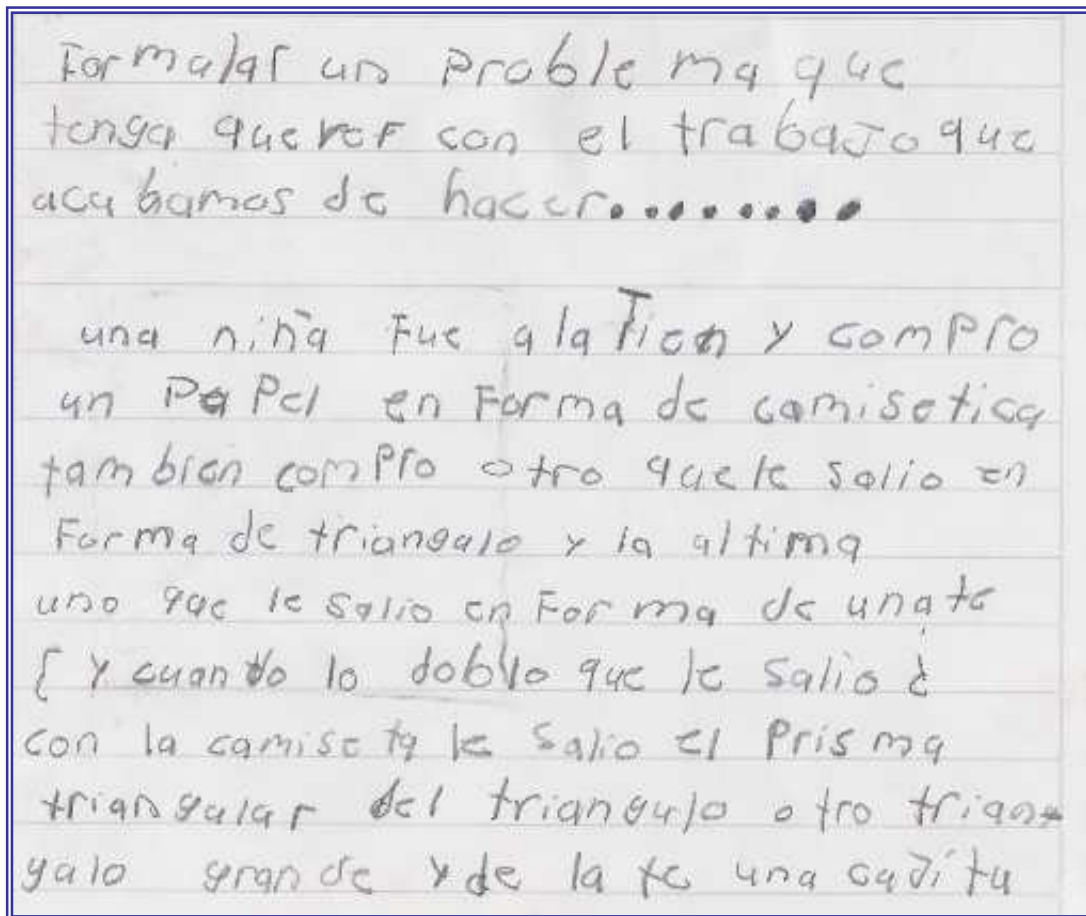 Formular un Problema que
tenga quever con el trabajo que
acabamos de hacer........
una niña Fue a la Tien y compro
un PaPel en Forma de camisetica
tambien comPro otro que le salio en
Forma de triangulo y la ultima
uno que le salio en Forma de una te
¿ y cuando lo doblo que le salio ?
con la camiseta le salio el Prisma
triangular del triangulo otro trian
gulo grande y de la te una cajita